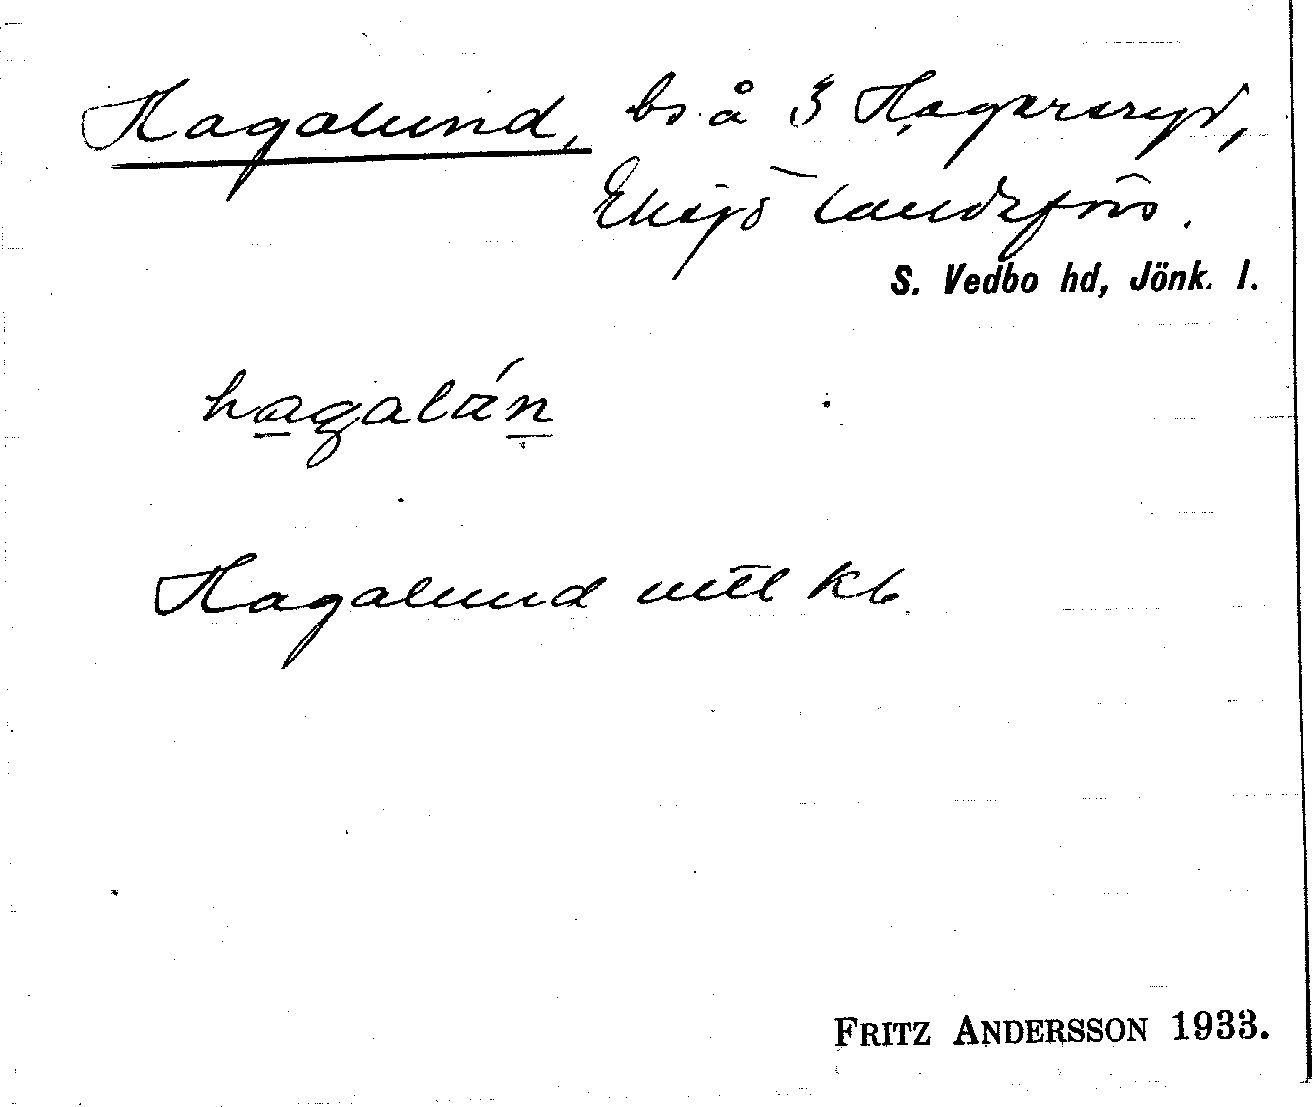 Hagalund, bs å 3 Hagarsryd,
Eksjö landsförs.
S. Vedbo hd, Jönk. l.
hagalán
Hagalund uttl kb
FRITZ ANDERSSON 1933.